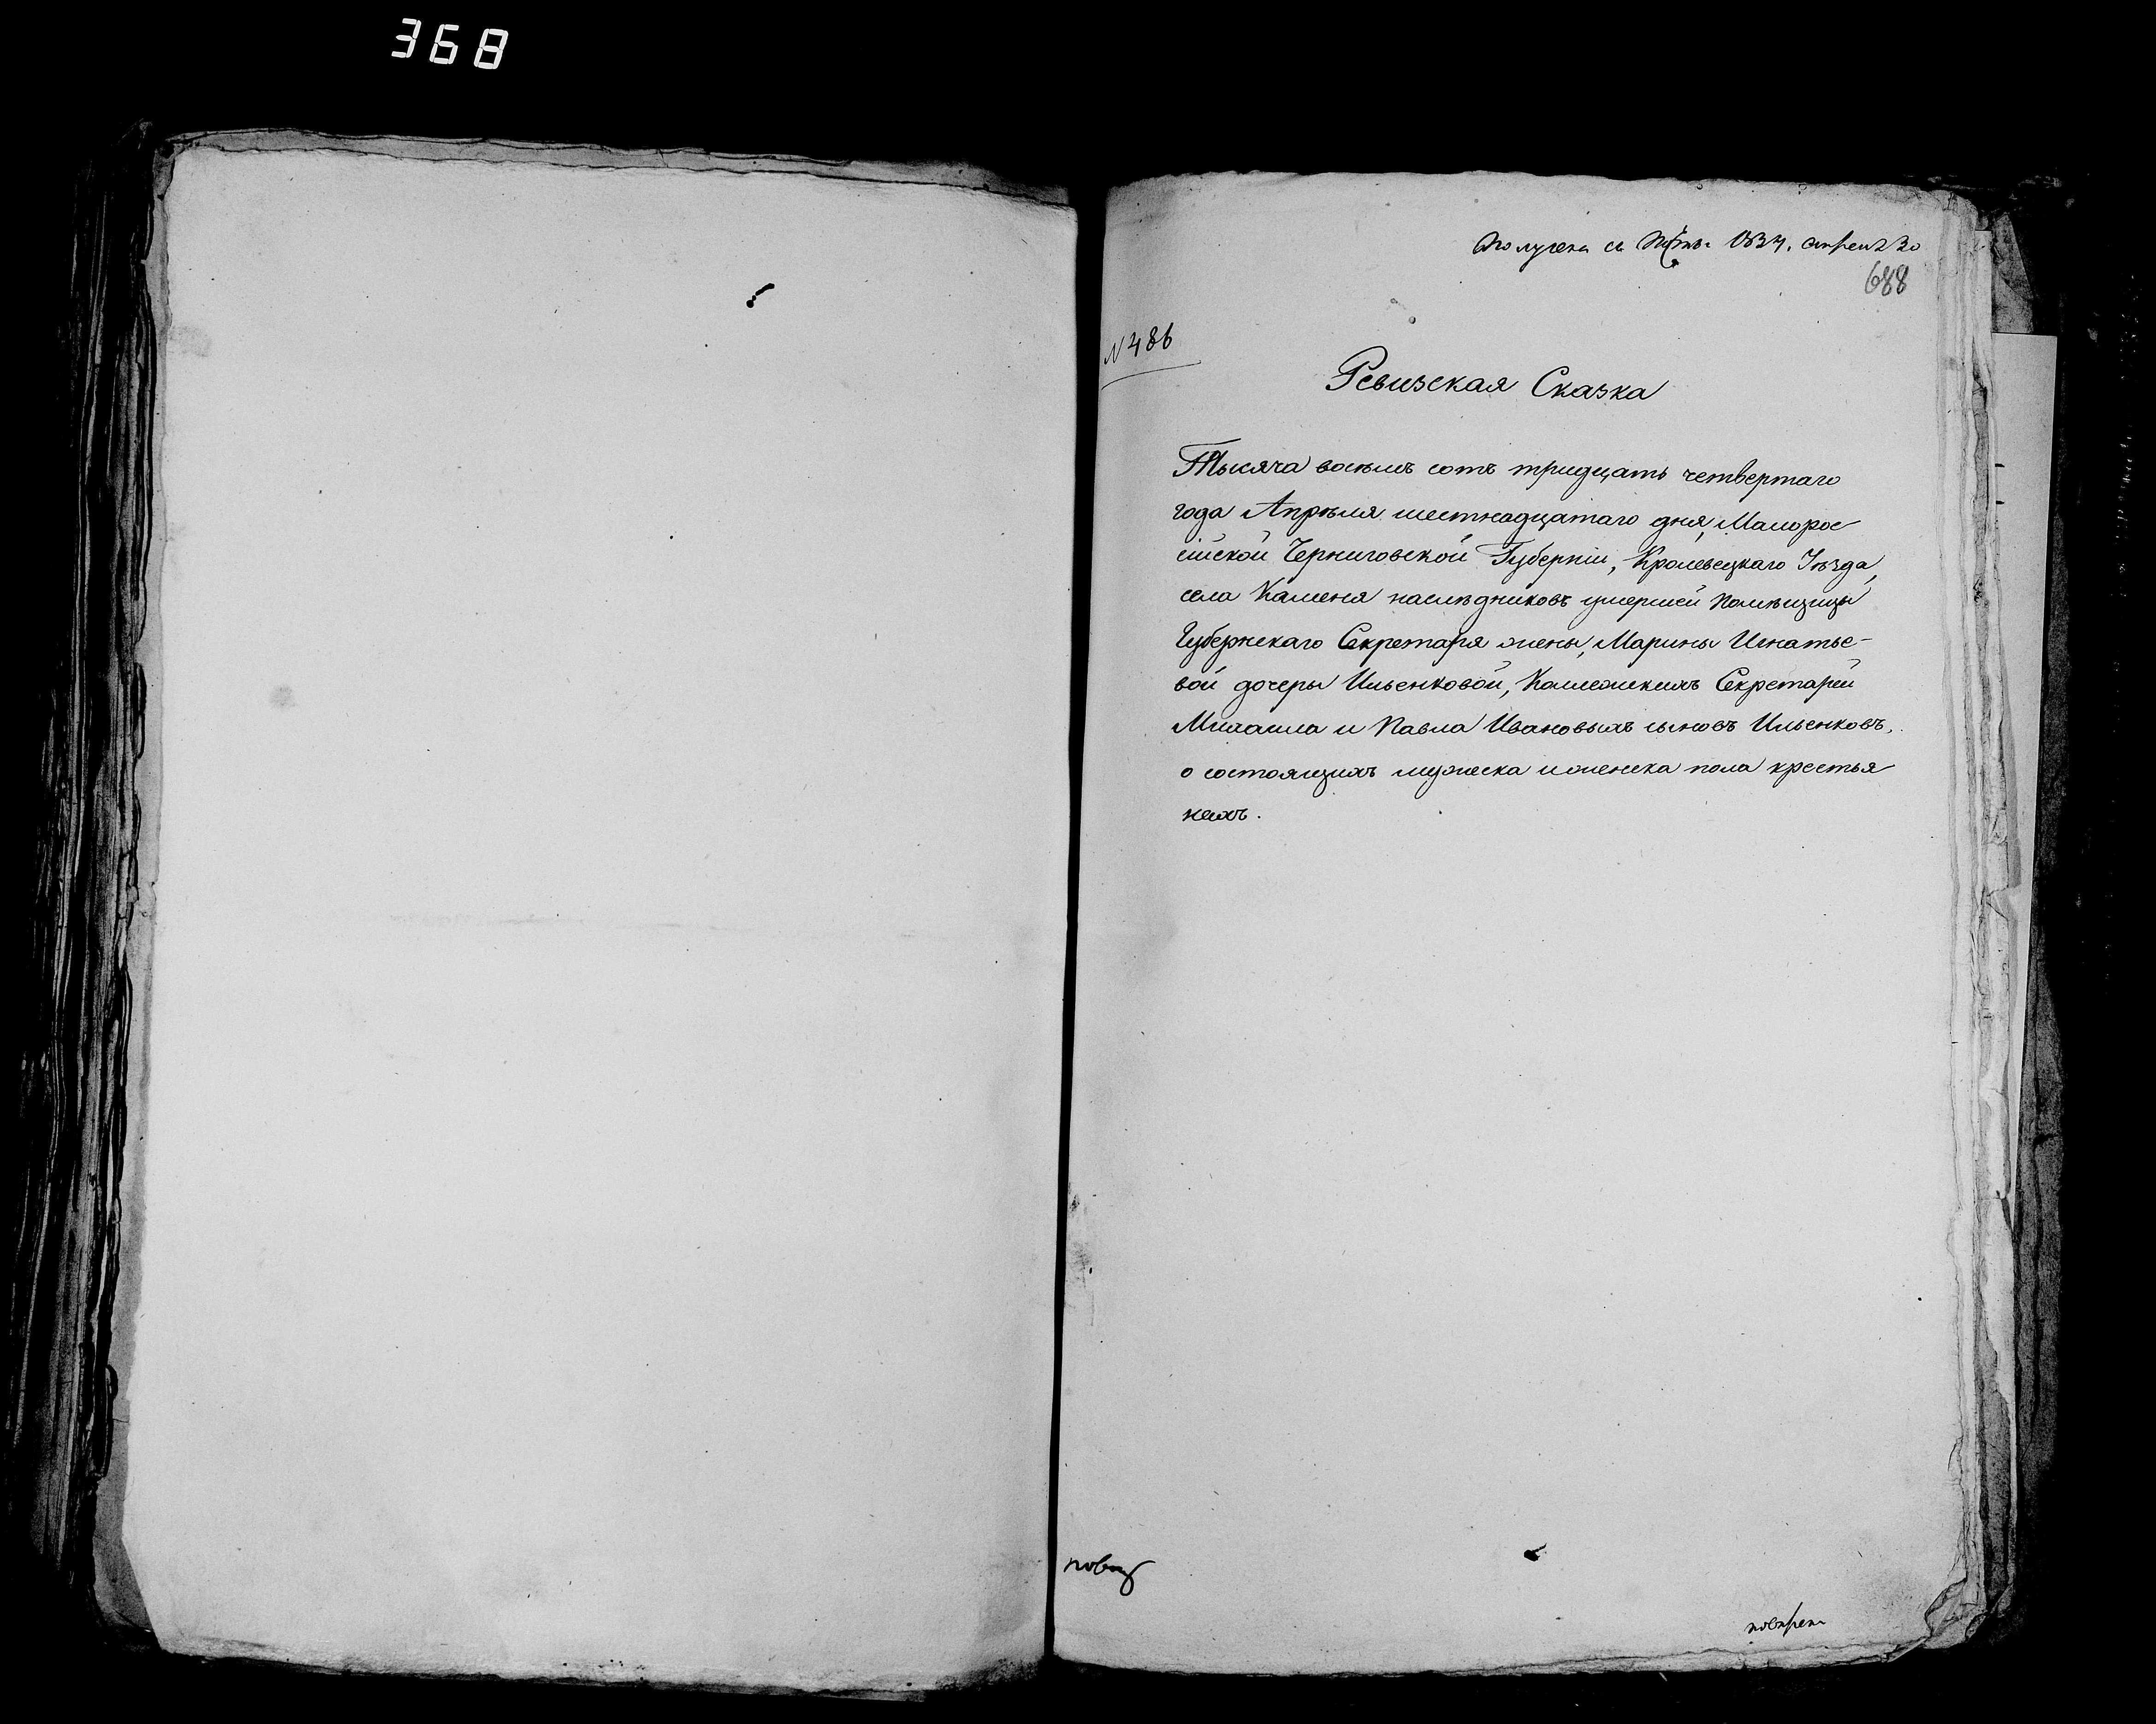 368
Получена съ 1834. апреля 30
688
№ 486
Ревизская Сказка
Тысяча восемь сотъ тридцать четвертаго
года Апрѣля шестнадцатаго дня, Малорос
сійской Черниговской Губерніи, Кролевецкаго Уѣзда,
села Каменя наслѣдниковъ умершей Помѣщицы
Губернскаго Секретаря жены, Марины Игнатье-
вой дочеры Ильенковой, Коллежскихъ Секретарей
Михаила и Павла Ивановыхъ сыновъ Ильенковъ,
о состоящихъ мужеска и женска пола крестья
нехъ.